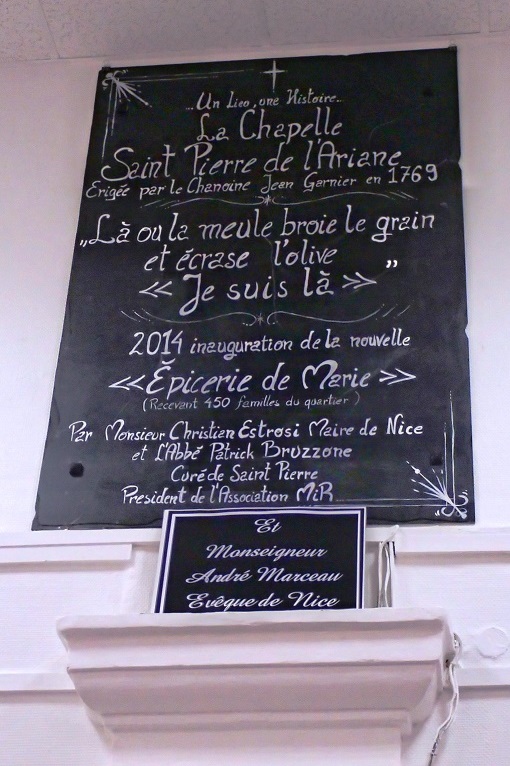 ...Un Lieo, une Histoire..
La Chapelle
Saint Pierre de l'Ariane
Erigée par le Chanoine Jean Garnier en 1769
„Là ou la meule broie le grain
et écrase l'olive
« Je suis là » ”
2014 inauguration de la nouvelle
«Épicerie de Marie»
(Recevant 450 familles du quartier)
Par Monsieur Christian Estrosi Maire de Nice
et L'Abbé Patrick Bruzzone
Curé de Saint Pierre
President de l'Association MiR
Et
Monseigneur
André Marceau
Evêque de Nice